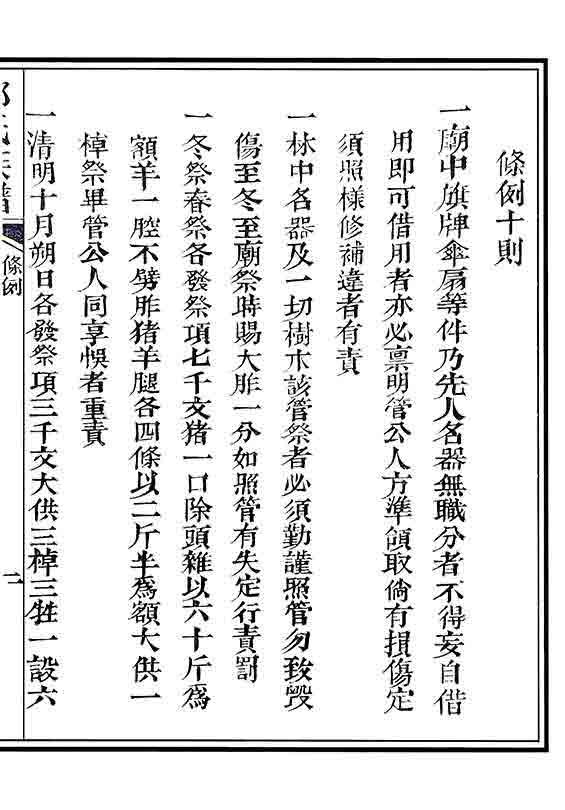 條例十則
一廟中旗牌傘扇等件乃先人名器無職分者不得妄自借
用即可借用者亦必禀明管公人方準領取倘有損傷定
須照樣修補違者有責
一林中各器及一切樹木該管祭者必須勤謹照管勿致毀
傷至冬至廟祭時賜大胙一分如照管有失定行責罰
一冬祭春祭各發祭項七千文猪一口除頭雜以六十斤爲
額羊一腔不劈胙猪羊腿各四條以二斤半爲額大供一
棹祭畢管公人同享悞者重責
一清明十月朔日各發祭項三千文大供三棹三牲一設六
條例
二